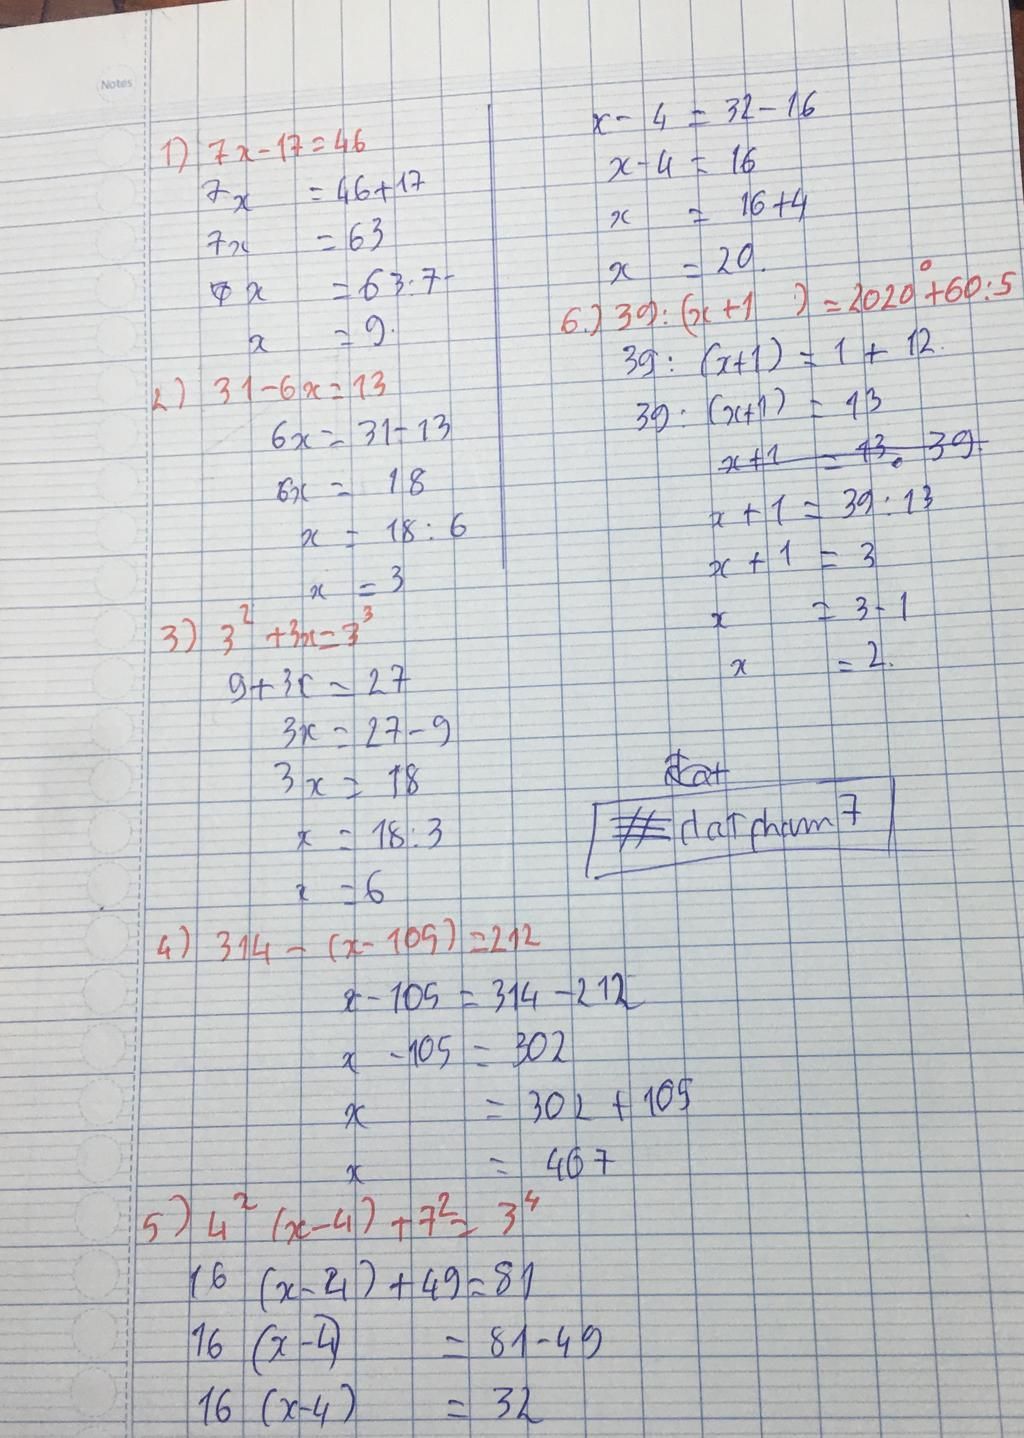 Notes
1) 7x-17=46
7x = 46+17
7x = 63
x = 63:7
x = 9.
2) 31-6x=13
6x = 31-13
6x = 18
x = 18:6
x = 3
3) 3² +3x=3³
9+3x = 27
3x = 27-9
3x = 18
x = 18:3
x = 6
4) 314 - (x-105) =212
x-105 = 314-212
x -105 = 302
x = 302 + 105
x = 407
5) 4² (x-4) +7² = 3⁴
16 (x-4) + 49=81
16 (x-4) = 81-49
16 (x-4) = 32
x- 4 = 32-16
x-4 = 16
x = 16+4
x = 20.
6.) 39: (x+1 ) = 2020⁰+60:5
39: (x+1) = 1 + 12.
39: (x+1) = 13
x+1 = 13. 39.
x+1 = 39:13
x+1 = 3
x = 3-1
x = 2.
datpham7